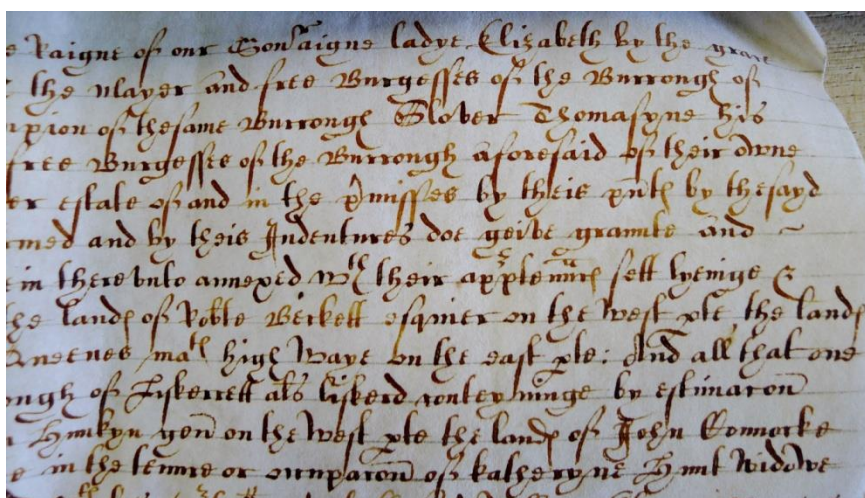 e Raigne of our Sov'aigne ladye Elizabeth by the grace
the Mayer and free Burgesses of the Burrough of
mpion of thesame Burrough Glover Thomasyne his
free Burgesses of the Burrough aforesaid of their owne
er estate of and in the p'misses by theis pnts by thesayd
rmed and by theis Indentures doe geive graunte and ~
e in therevnto annexed wth their apptennces sett lyeinge &
he lands of Roble Beckett esquier on the west pte the lands
Queenes matis high waye on the east pte: And all that one
ough of Liskerrett als liskerd conteyninge by estimacon
Hunkyn gen on the west pte the lands of John Connocke
e in the tenure or occupacon of Katheryne Hunt widowe